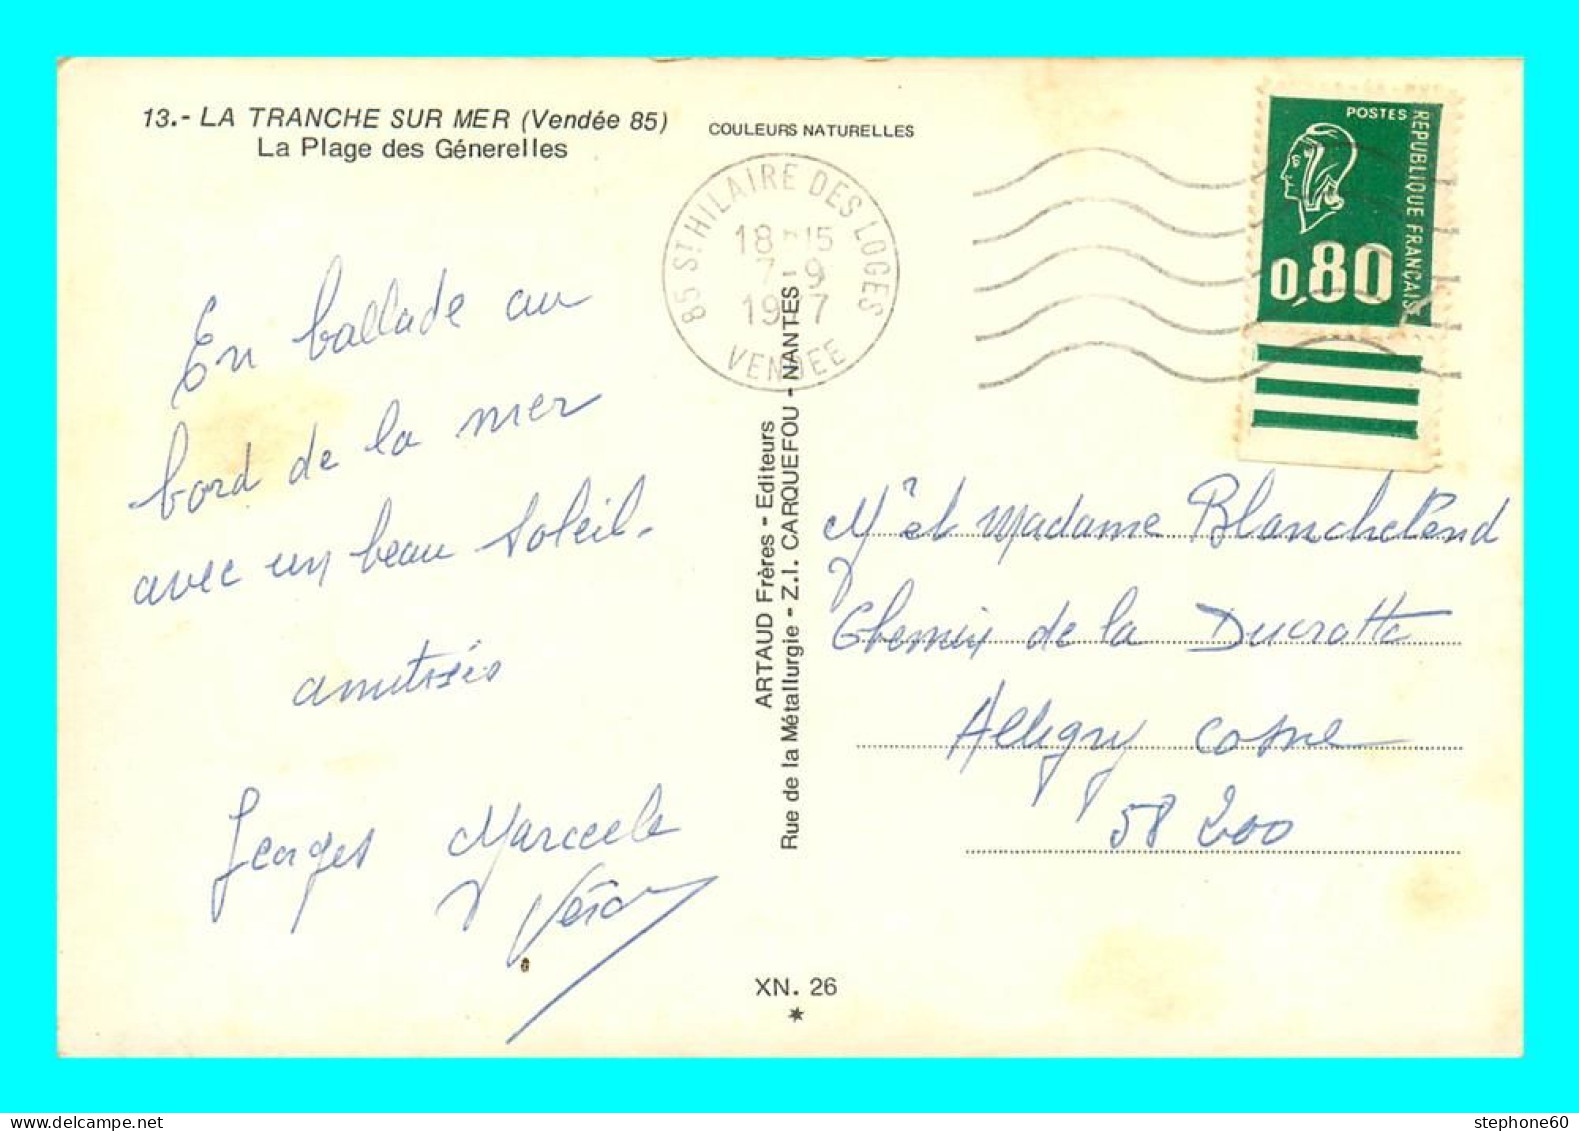 13.- LA TRANCHE SUR MER (Vendée 85)
La Plage des Génerelles
COULEURS NATURELLES
85 ST HILAIRE DES LOGES
18 H 15
7-9
1977
VENDEE
POSTES
REPUBLIQUE FRANÇAISE
0,80
En ballade au
bord de la mer
avec un beau soleil.
amitiés
Georges Marcele
ARTAUD Frères - Editeurs
Rue de la Métallurgie - Z.I. CARQUEFOU - NANTES
Mr et Madame Blanchet
Chemin de la Ducrotte
Alligny Cosne
58 200
XN. 26
stephone60